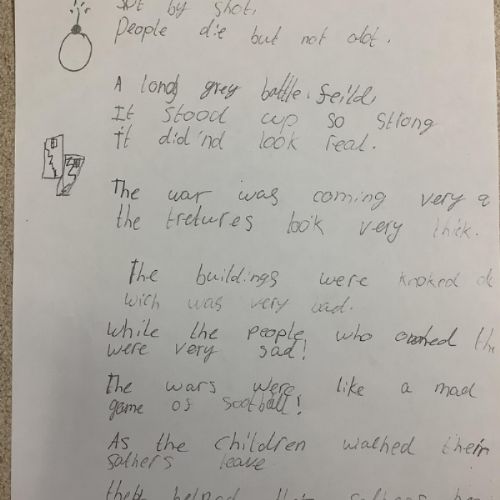 by shot,
People die but not old.
A long grey battle feild,
It stood up so strong
it did'nd look real.
The war was coming very
the tretures look very thick.
The buildings were knoked
wich was very bad.
While the people who owned
were very sad!
The wars were like a mad
game of football!
As the children walked their
fathers leave
helped